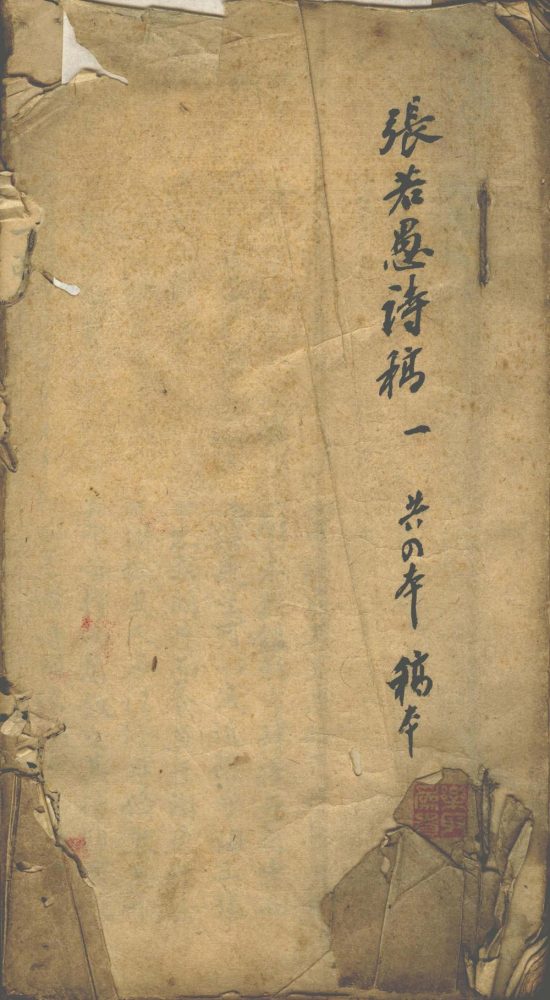 張若愚詩稿 一 共四本 稿本